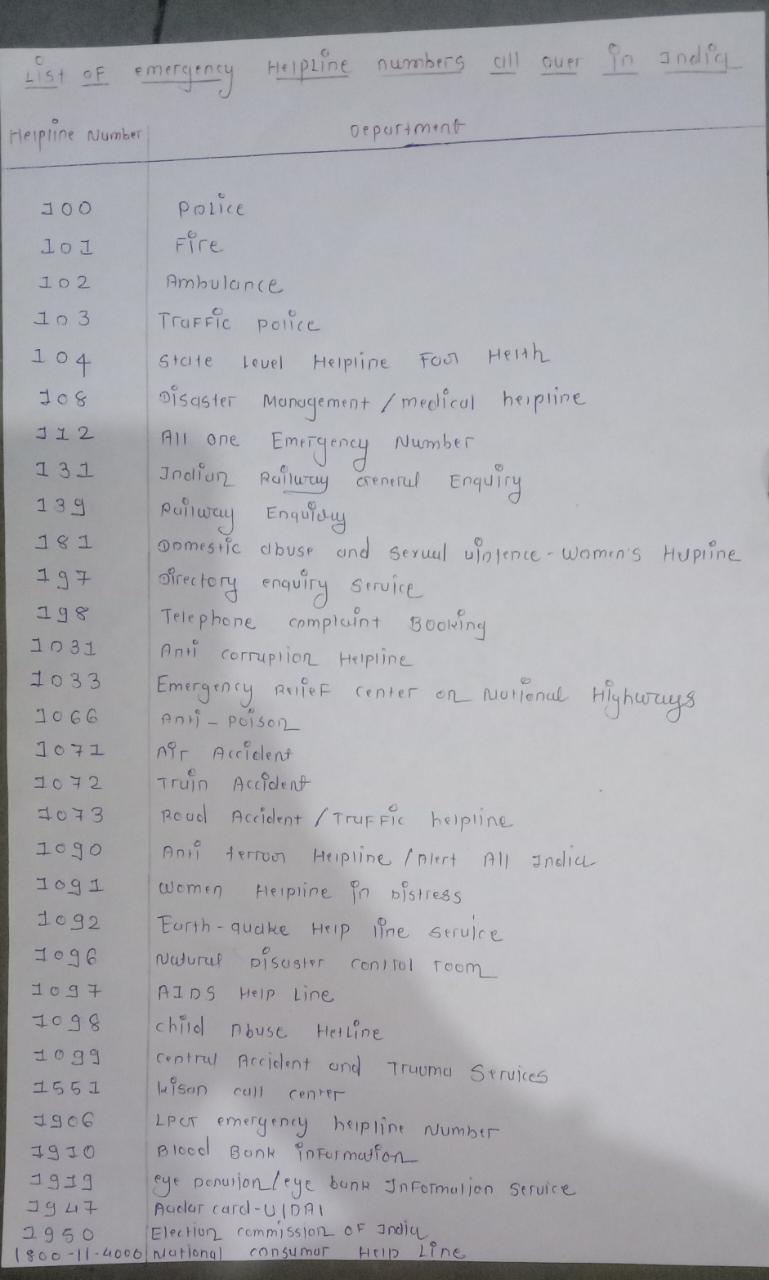 List of emergency Helpline numbers all over in India
Helpline Number Department
100 Police
101 Fire
102 Ambulance
103 Traffic police
104 State level Helpline Foor Helth
108 Disaster Management / medical helpline
112 All one Emergency Number
131 Indian Railway General Enquiry
139 Railway Enquiry
181 Domestic abuse and sexual violence - women's Hupline
197 Directory enquiry service
198 Telephone complaint Booking
1031 Anti corruption Helpline
1033 Emergency Relief center on National Highways
1066 Anti - poison
1071 Air Accident
1072 Train Accident
1073 Road Accident / Traffic helpline
1090 Anti terror Helpline / Alert All India
1091 women Helpline in Distress
1092 Earth-quake Help line service
1096 Natural Disaster control room
1097 AIDS Help Line
1098 child Abuse Hotline
1099 central Accident and Trauma Services
1551 kisan call center
1906 LPG emergency helpline Number
1910 Blood Bank information
1919 eye Donation/eye bank Information service
1947 Aadar card-UIDAI
1950 Election commission of India
1800-11-4000 National consumar Help Line